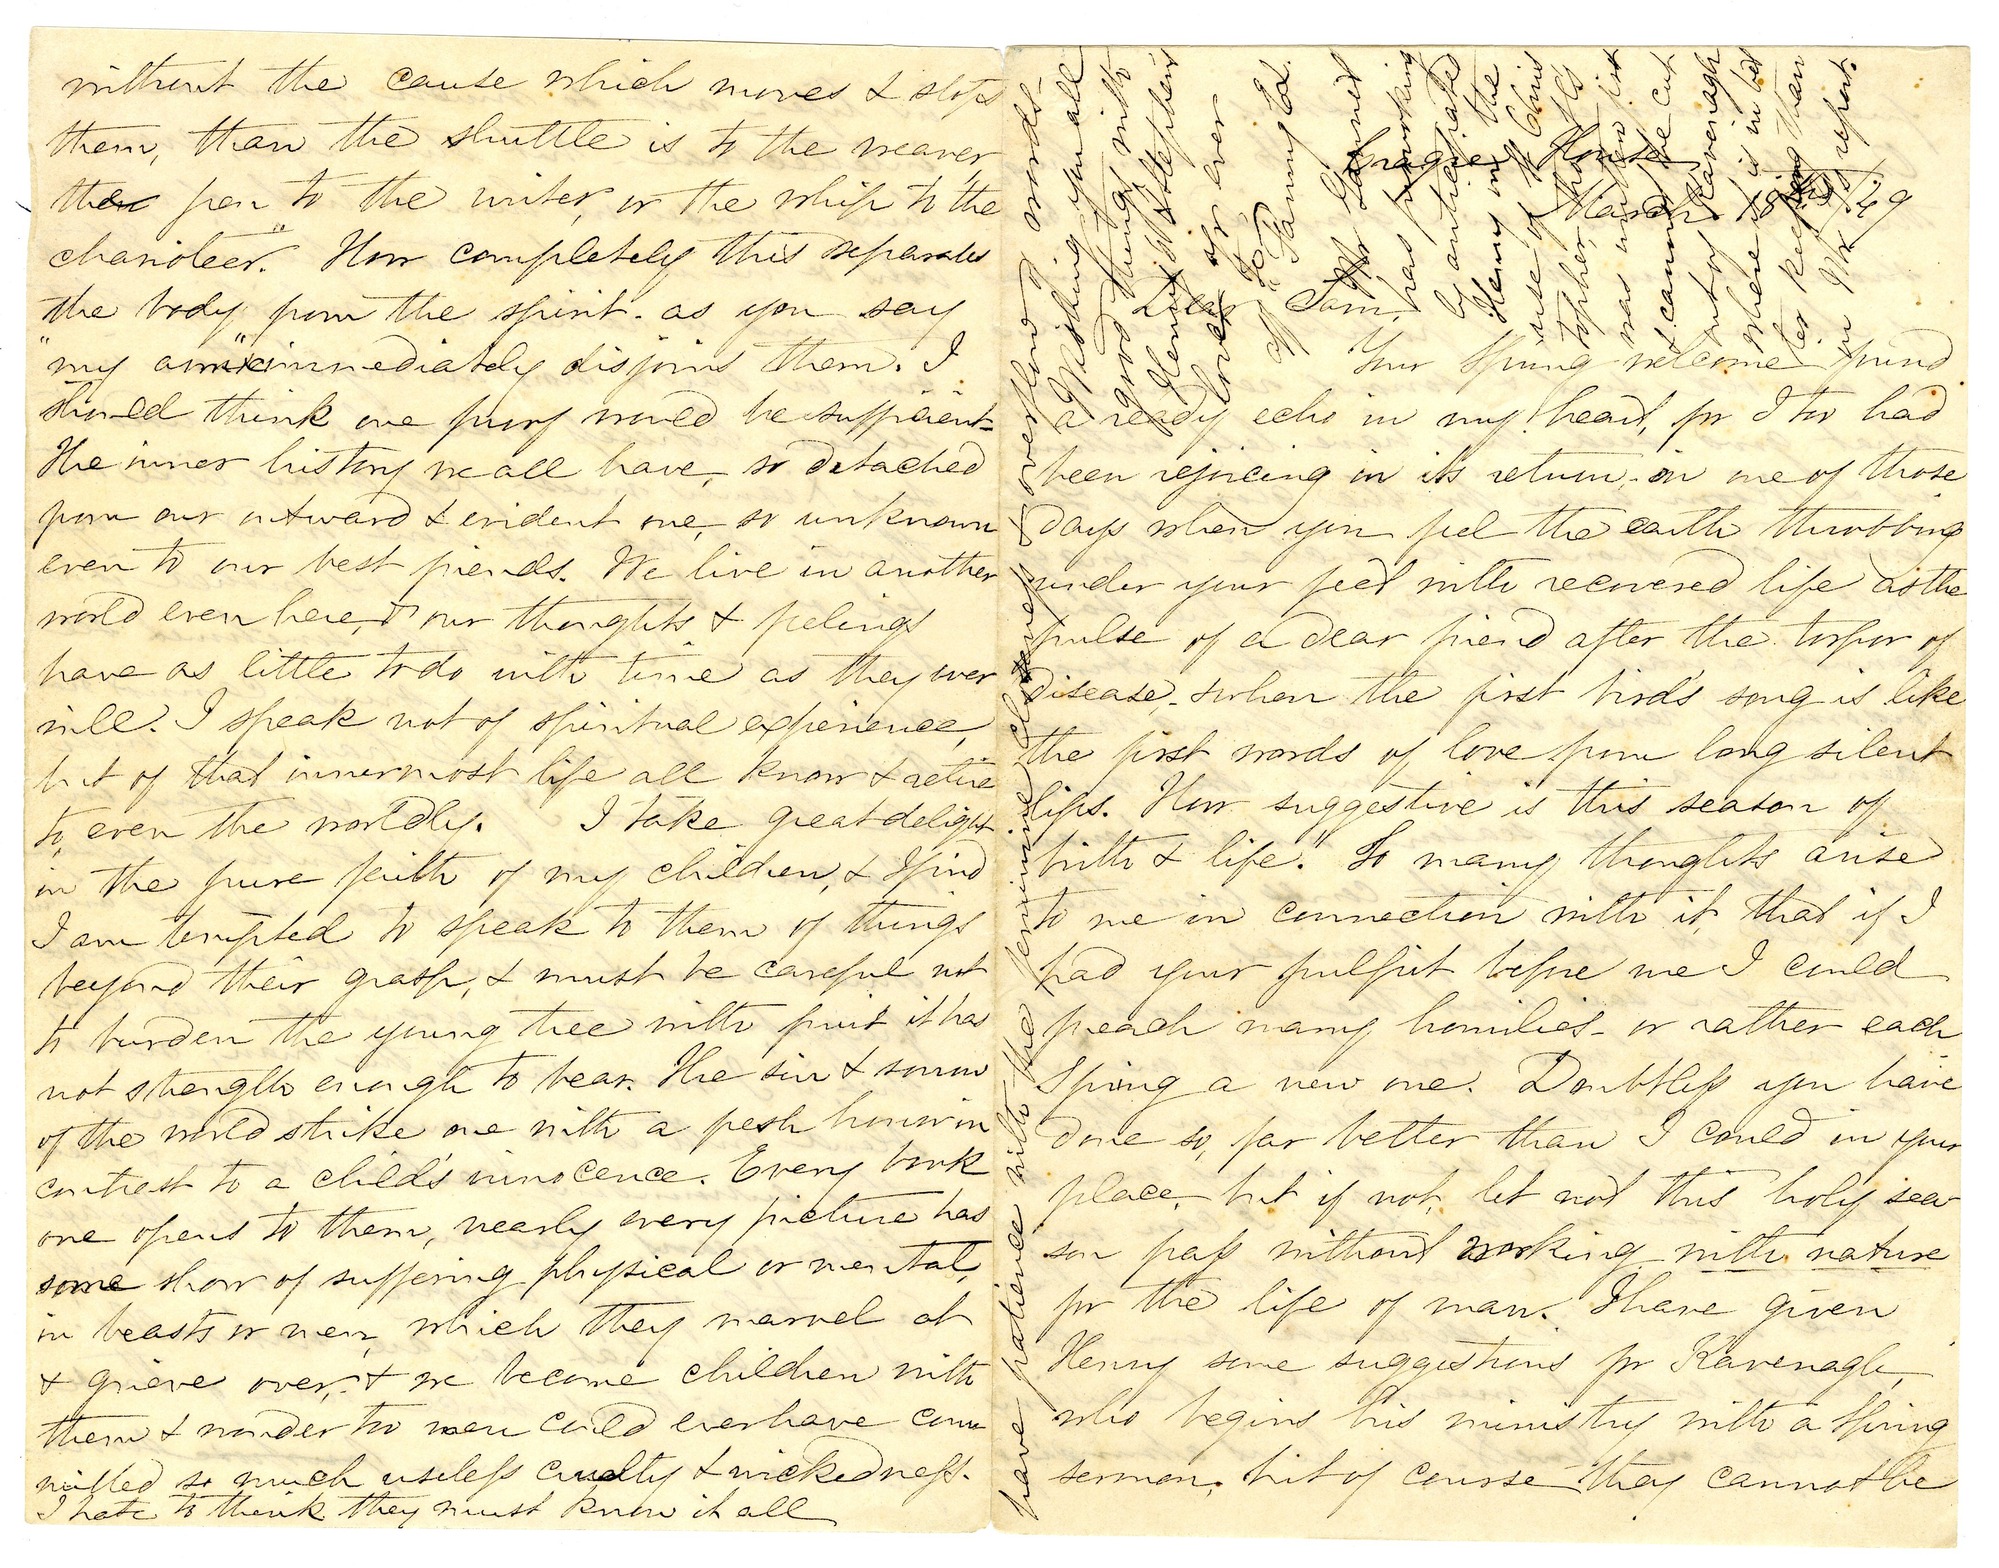 without the cause which moves & stops
them, than the shuttle is to the weaver,
the pen to the writer, or the whip to the
charioteer." How completely this separates
the body from the spirit. as you say
"my arm" immediately disjoins them. I
should think one proof would be sufficient-
The inner history we all have, so detached
from our outward & evident one, so unknown
even to our best friends. We live in another
world even here, & our thoughts & feelings
have as little to do with time as they ever
will. I speak not of spiritual experience,
but of that innermost life all know & retire
to, even the worldly. I take great delight
in the pure faith of my children, & find
I am tempted to speak to them of things
beyond their grasp, & must be careful not
to burden the young tree with fruit it has
not strength enough to bear. The sin & sorrow
of the world strike one with a fresh horror in
contrast to a child's innocence. Every book
one opens to them, nearly every picture has
some show of suffering physical or mental,
in beasts or men, which they marvel at
& grieve over, & we become children with
them & wonder too men could ever have com
mitted so much useless cruelty & wickedness.
I hate to think they must know it all
Craigie House
March 18th /49
Dear Sam,
Your Spring welcome found
a ready echo in my heart, for I too had
been rejoicing in its return, on one of those
days when you feel the earth throbbing
under your feet with recovered life as the
pulse of a dear friend after the torpor of
disease, & when the first bird's song is like
the first words of love from long silent
lips. How suggestive is this season of
birth & life." So many thoughts arise
to me in connection with it, that if I
had your pulpit before me I could
preach many homilies - or rather each
Spring a new one. Doubtless you have
done so, far better than I could in your
place, but if not, let not this holy sea
son pass without working with nature
for the life of man. I have given
Henry some suggestions for Kavanagh,
who begins his ministry with a Spring
sermon, but of course they cannot be
have patience with the feminine & overflow of words-
Wishing you all
good things with
Henry's &
love, ever
aff yr
Fanny E L.
Mr
has
by anticipated
Henry in the
use of Chris
topher, Mr
was
& cannot be cut
out of Kavanagh
where he is in bed